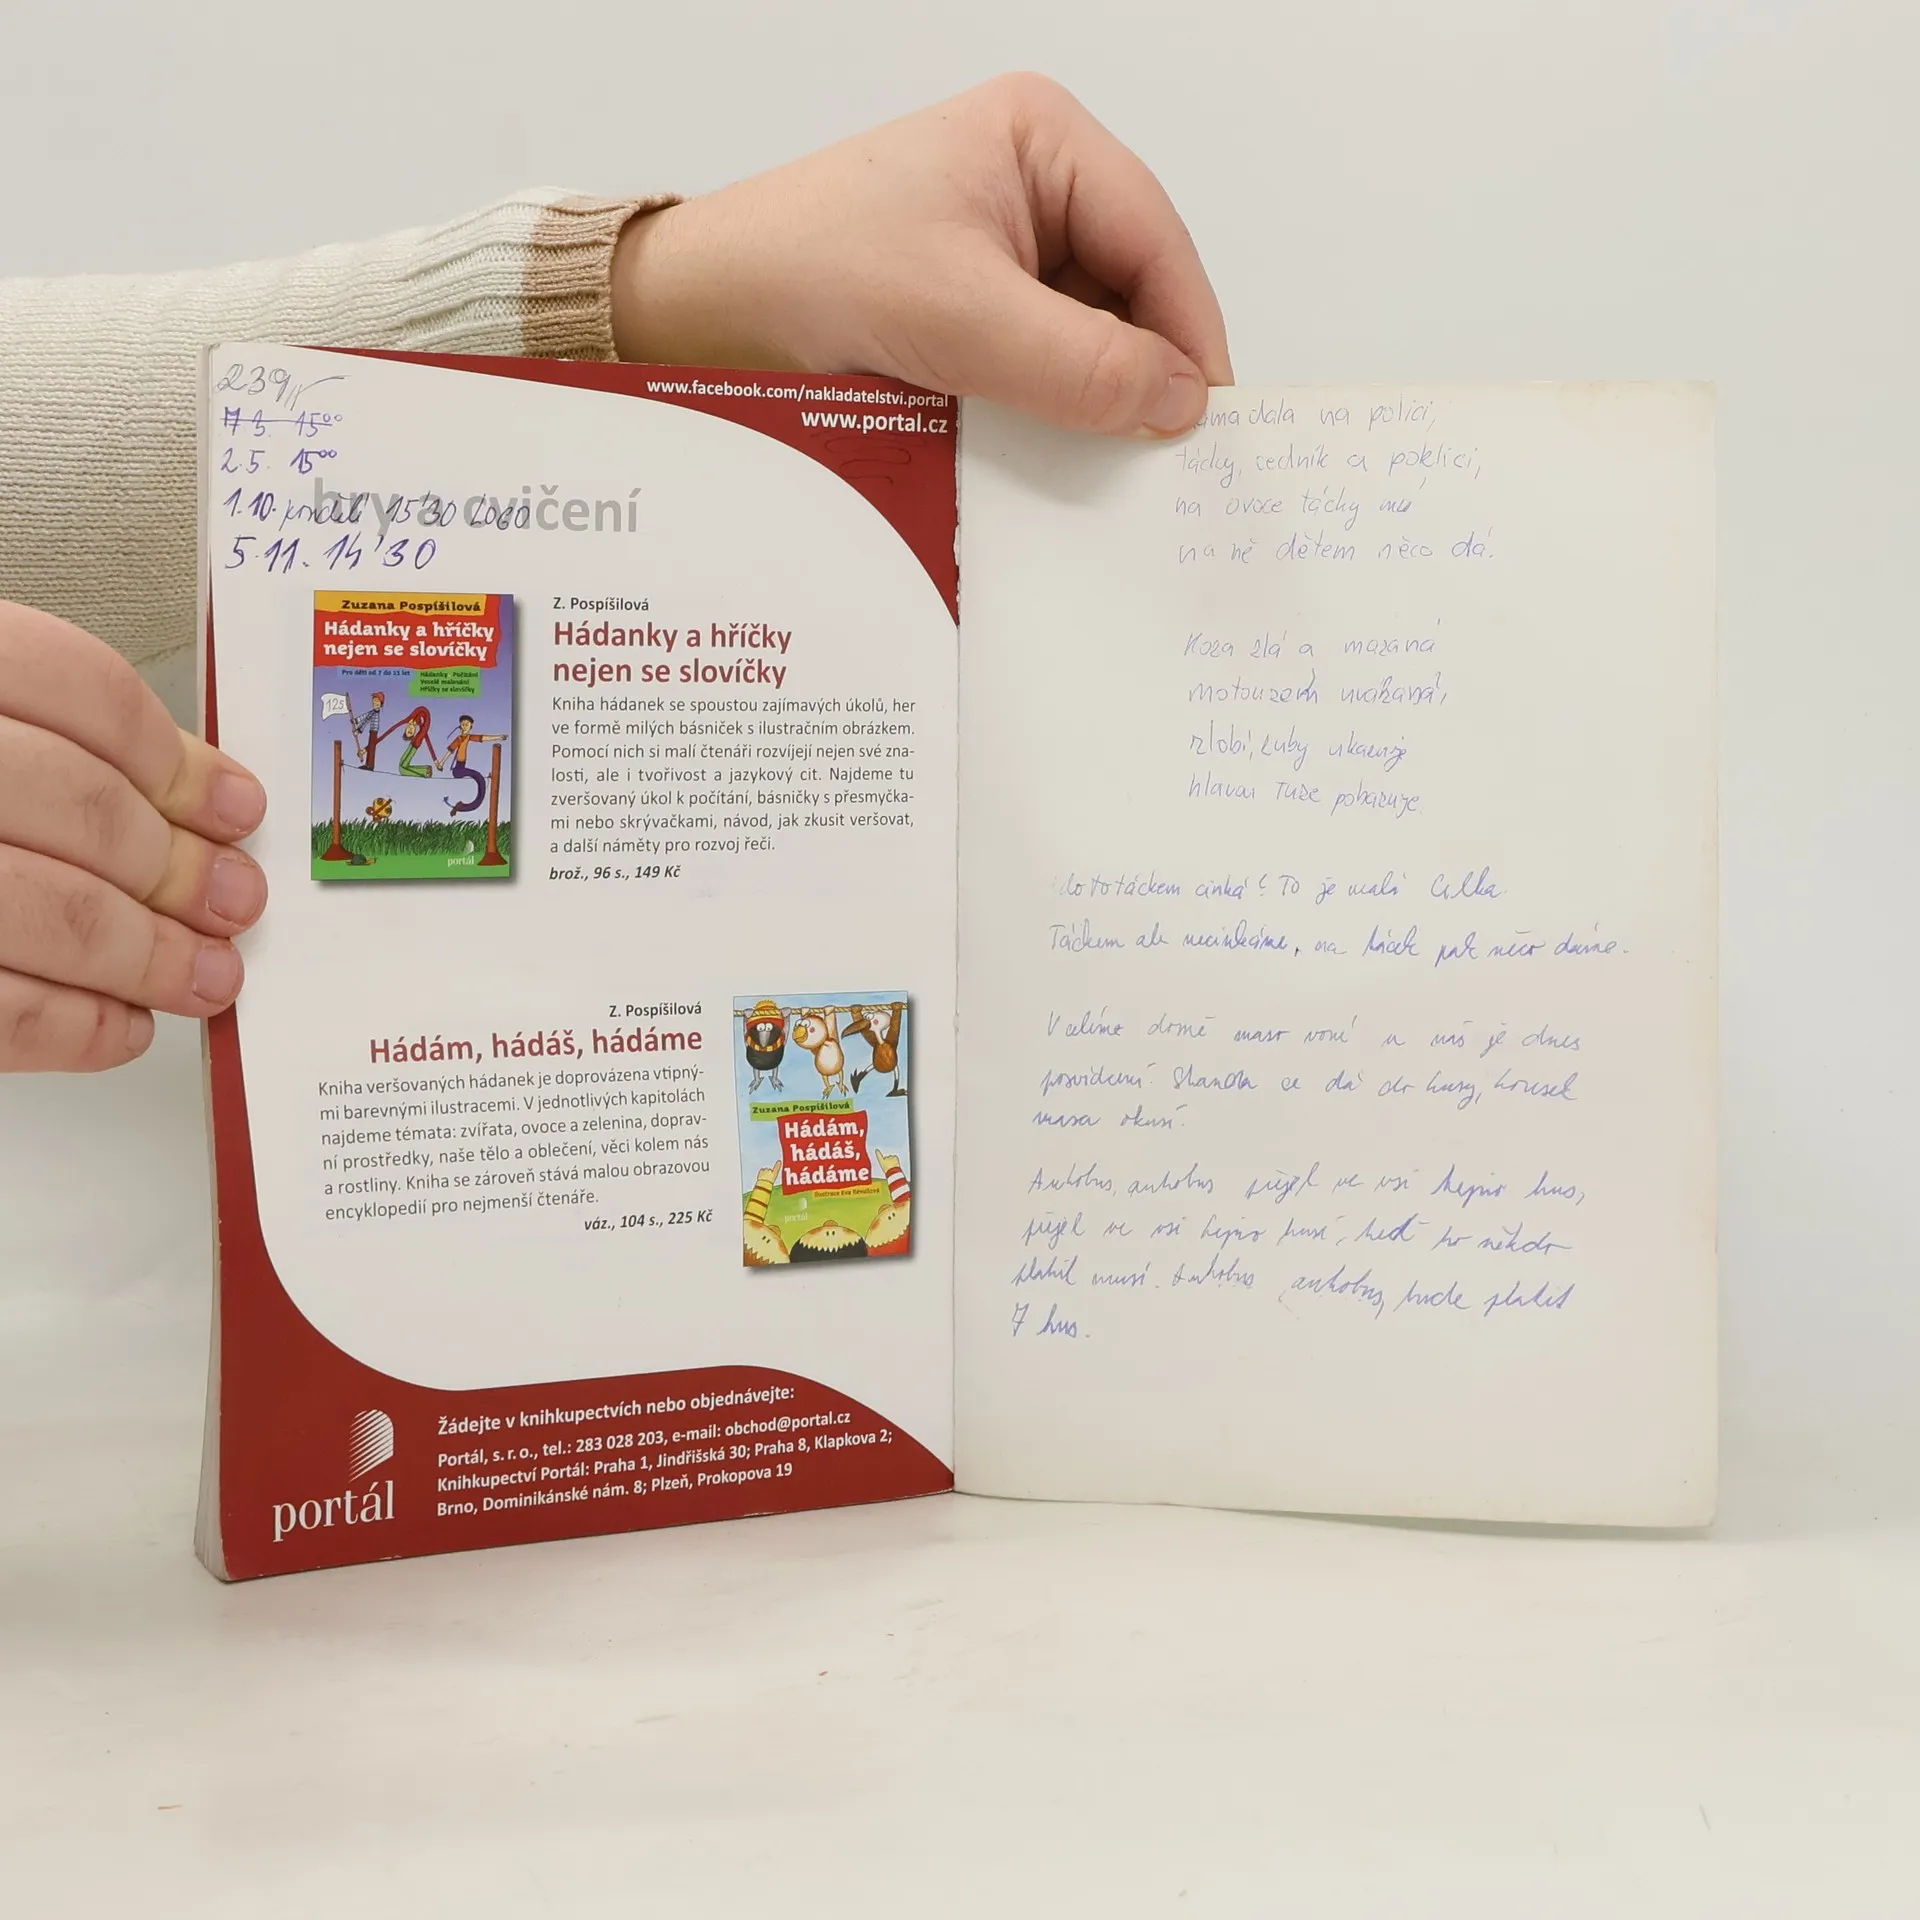 239
7 3. 15⁰⁰
2.5. 15⁰⁰
1.10. pondělí 15'30 LOGO
5.11. 14'30
www.facebook.com/nakladatelstvi.portal
www.portal.cz
hry a cvičení
Zuzana Pospíšilová
Hádanky a hříčky
nejen se slovíčky
Pro děti od 7 do 11 let
Hádanky Počítání
Veselé malování
Hříčky se slovíčky
125
portál
Z. Pospíšilová
Hádanky a hříčky
nejen se slovíčky
Kniha hádanek se spoustou zajímavých úkolů, her
ve formě milých básniček s ilustračním obrázkem.
Pomocí nich si malí čtenáři rozvíjejí nejen své zna-
losti, ale i tvořivost a jazykový cit. Najdeme tu
zveršovaný úkol k počítání, básničky s přesmyčka-
mi nebo skrývačkami, návod, jak zkusit veršovat,
a další náměty pro rozvoj řeči.
brož., 96 s., 149 Kč
Z. Pospíšilová
Hádám, hádáš, hádáme
Kniha veršovaných hádanek je doprovázena vtipný-
mi barevnými ilustracemi. V jednotlivých kapitolách
najdeme témata: zvířata, ovoce a zelenina, doprav-
ní prostředky, naše tělo a oblečení, věci kolem nás
a rostliny. Kniha se zároveň stává malou obrazovou
encyklopedií pro nejmenší čtenáře.
váz., 104 s., 225 Kč
Zuzana Pospíšilová
Hádám,
hádáš,
hádáme
portál
Žádejte v knihkupectvích nebo objednávejte:
Portál, s. r. o., tel.: 283 028 203, e-mail: obchod@portal.cz
Knihkupectví Portál: Praha 1, Jindřišská 30; Praha 8, Klapkova 2;
Brno, Dominikánské nám. 8; Plzeň, Prokopova 19
portál
ama dala na polici,
tácky, cedník a poklici,
na ovoce tácky má
na ně dětem něco dá.
Koza zlá a mazaná
motouzem uvázaná,
zlobí, zuby ukazuje
hlavou tuze pohazuje.
do to táckem cinká? To je malá Cilka.
Táckem ale necinkáme, na tácek pak něco dáme.
V celém domě maso voní u nás je dnes
posvícení. Standa se dá do husy, kousek
masa okusí.
Autobus, autobus přijel ve vsi hus,
přijel ve vsi husí, teď to někdo
platit musí. Autobus, autobus, bude platit
7 hus.